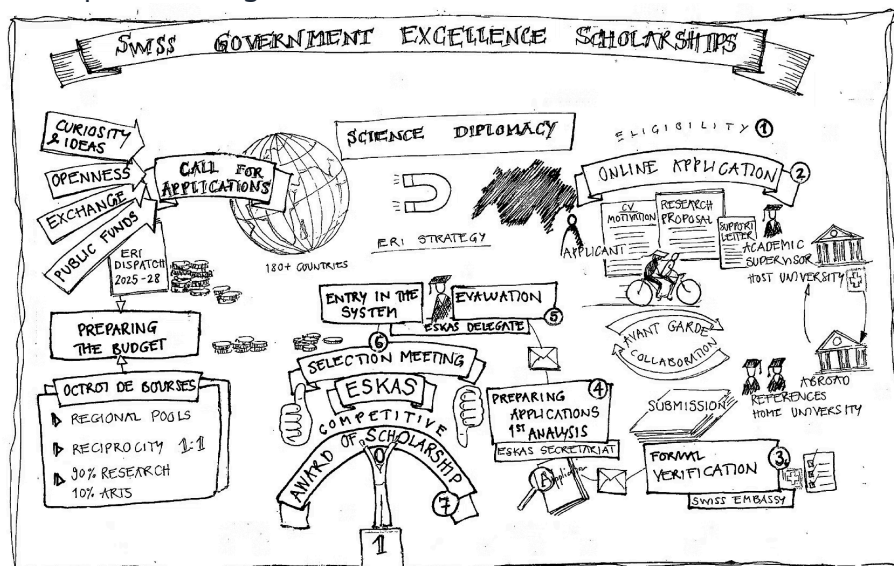 SWISS GOVERNMENT EXCELLENCE SCHOLARSHIPS
CURIOSITY
& IDEAS
OPENNESS
EXCHANGE
PUBLIC FUNDS
CALL FOR
APPLICATIONS
180+ COUNTRIES
SCIENCE DIPLOMACY
ERI STRATEGY
ELIGIBILITY 1
ONLINE APPLICATION 2
CV
MOTIVATION
RESEARCH
PROPOSAL
SUPPORT
LETTER
APPLICANT
ACADEMIC
SUPERVISOR
HOST UNIVERSITY
AVANT GARDE
COLLABORATION
ABROAD
REFERENCES
HOME UNIVERSITY
SUBMISSION
FORMAL
VERIFICATION 3
SWISS EMBASSY
Application
4
PREPARING
APPLICATIONS
1ST ANALYSIS
ESKAS SECRETARIAT
EVALUATION
5
ESKAS DELEGATE
ENTRY IN THE
SYSTEM
6
SELECTION MEETING
ESKAS
COMPETITIVE
AWARD OF SCHOLARSHIP
7
1
ERI
DISPATCH
2025-28
PREPARING
THE BUDGET
OCTROI DE BOURSES
REGIONAL POOLS
RECIPROCITY 1:1
90% RESEARCH
10% ARTS